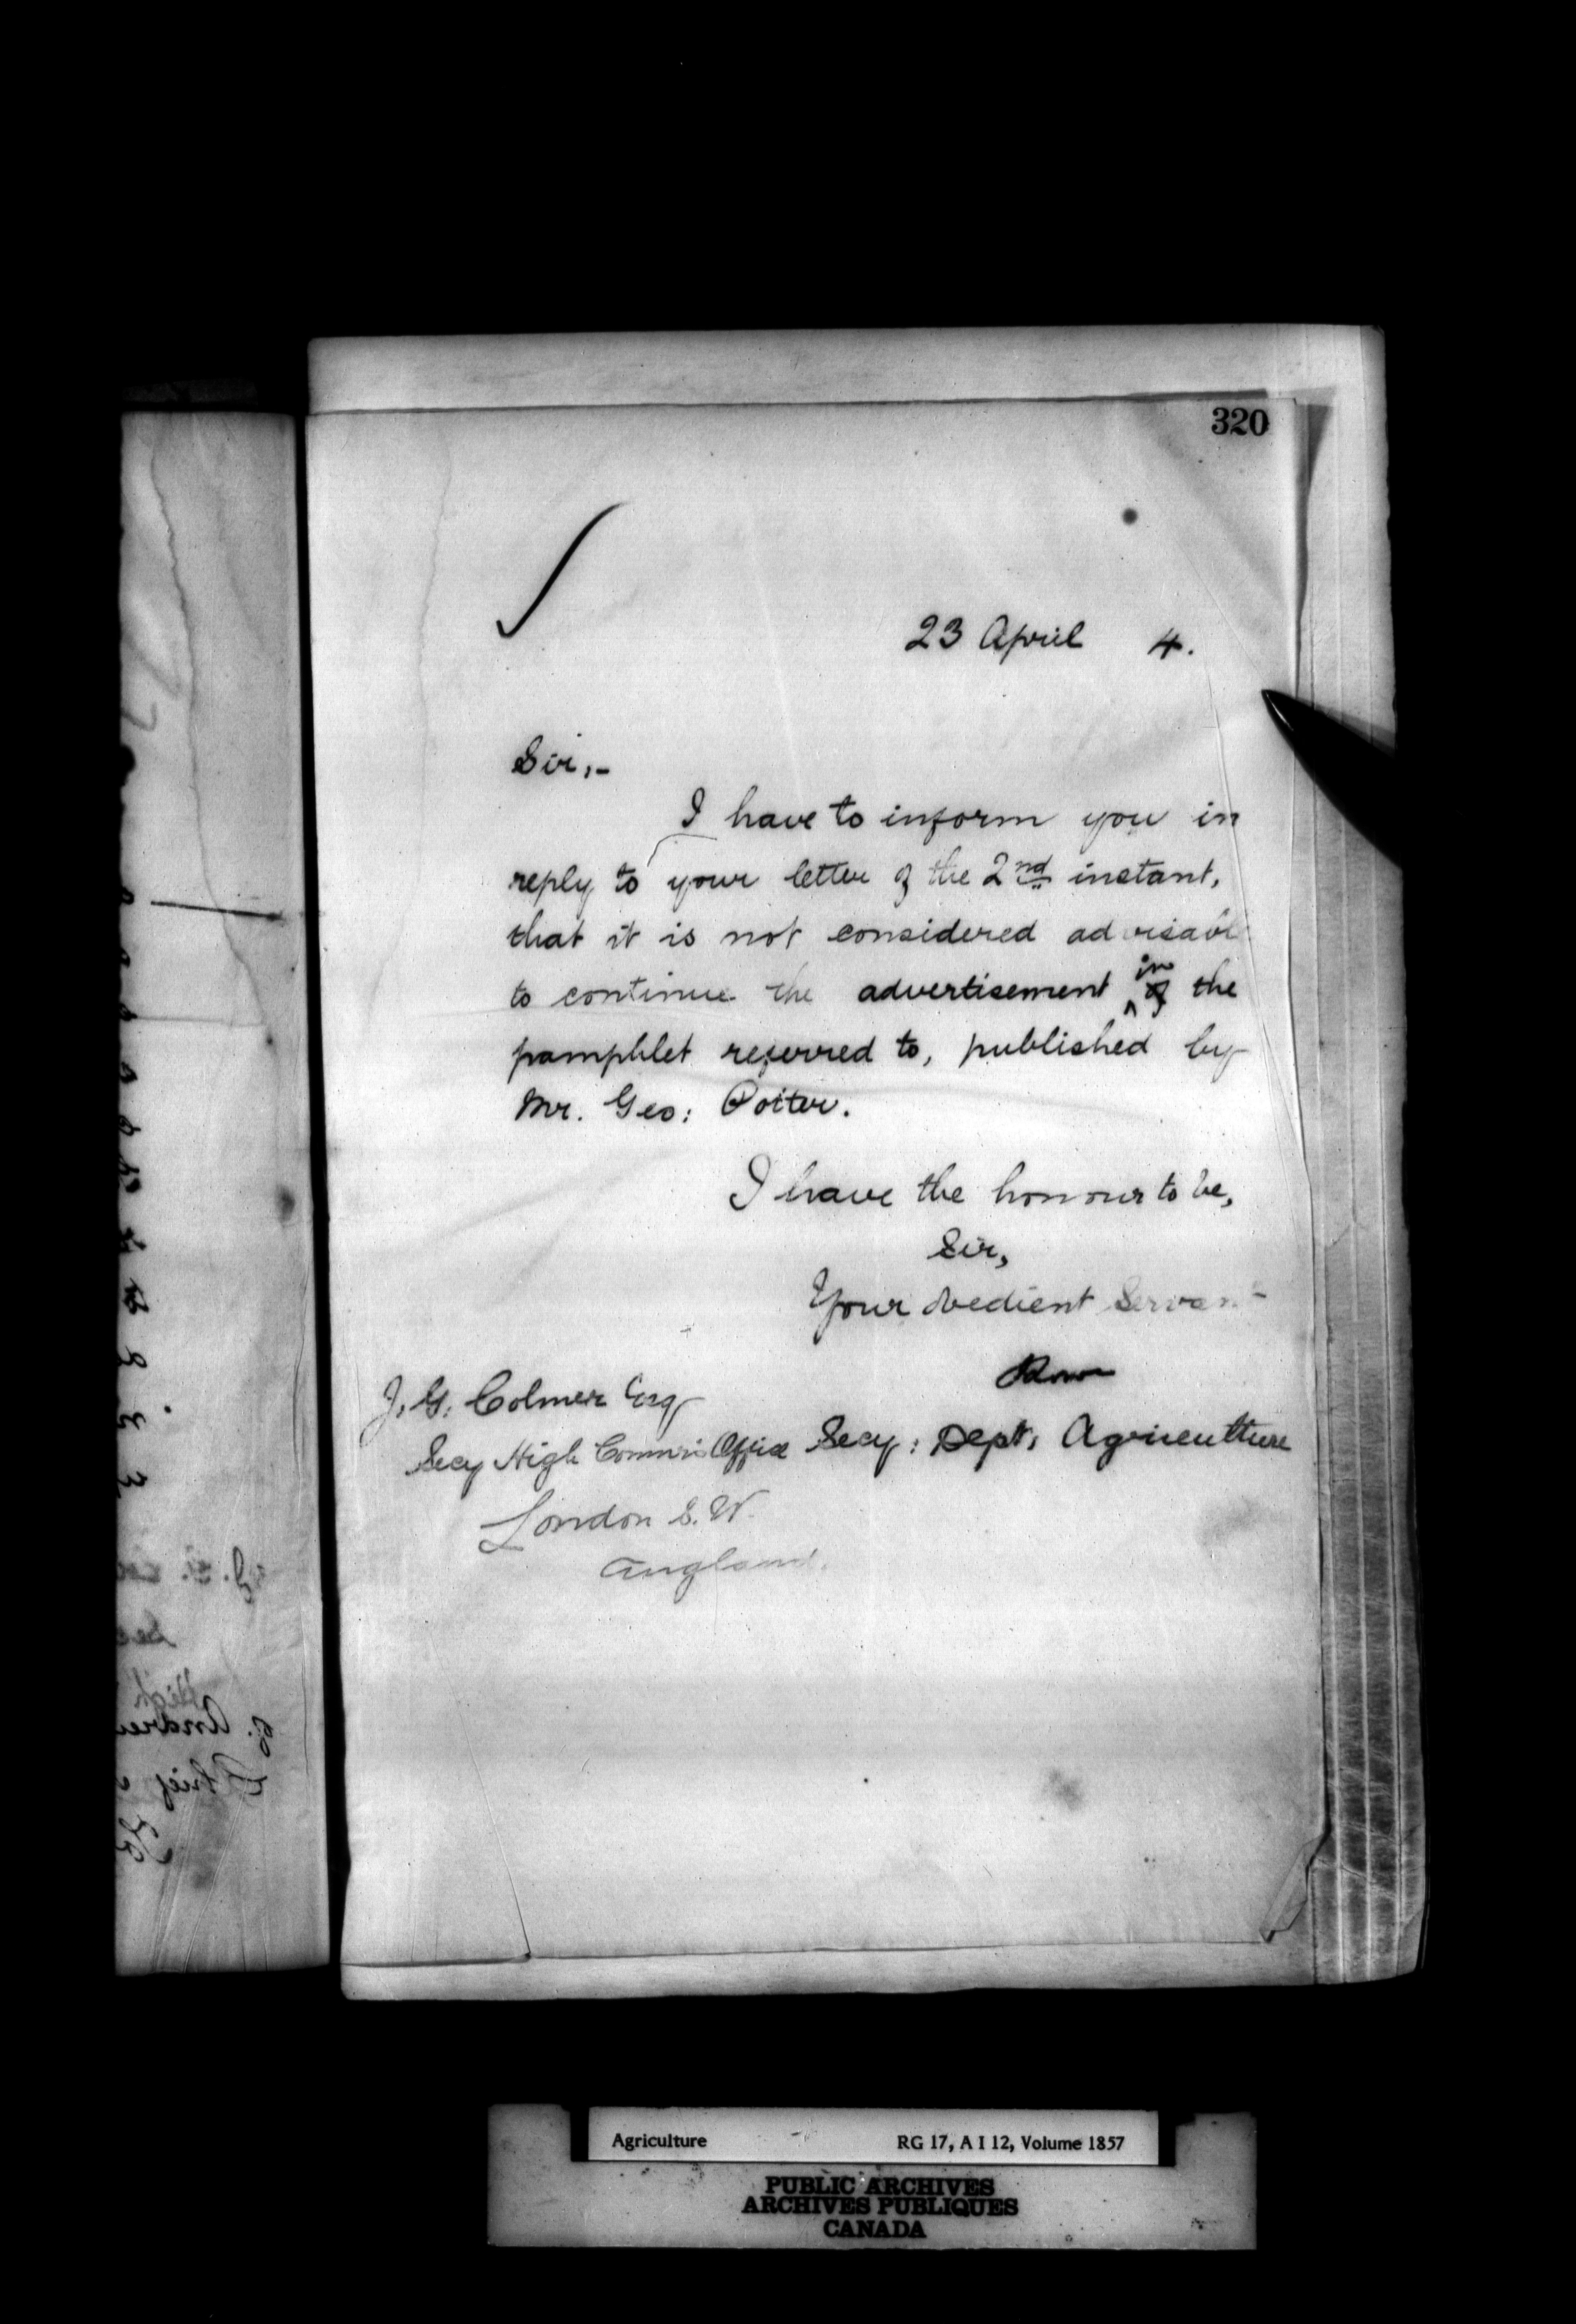 320
23 April 4.
Sir,-
I have to inform you in
reply to your letter of the 2nd instant,
that it is not considered advisabl
to continue the advertisement in of the
pamphlet referred to, published by
Mr. Geo: Potter.
I have the honour to be,
Sir,
Your obedient Servant
J. G. Colmer Esq
Secy High Commrs Office Secy: Dept, Agriculture
London S. W.
England.
Agriculture RG 17, A I 12, Volume 1857
PUBLIC ARCHIVES
ARCHIVES PUBLIQUES
CANADA